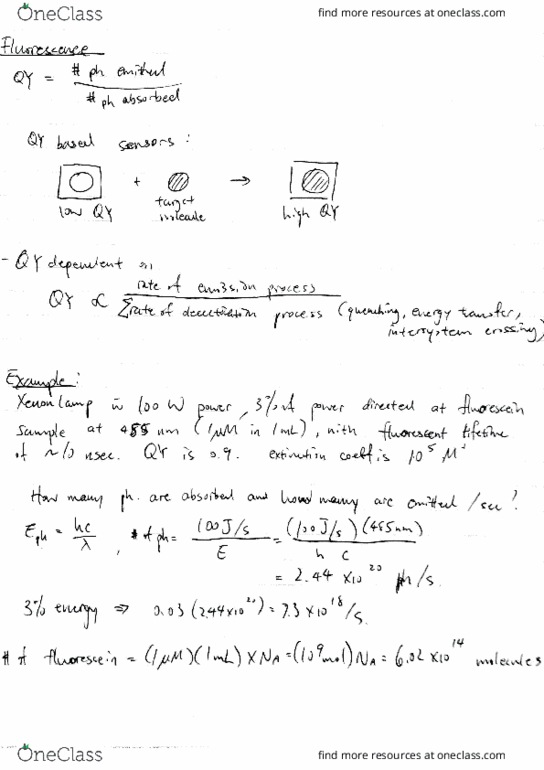 OneClass find more resources at oneclass.com
Fluorescence
QY = # ph emitted
# ph absorbed
QY based sensors:
+ →
low QY target molecule high QY
- QY dependent on
QY ∝ rate of emission process
Σrate of deexcitation process (quenching, energy transfer,
intersystem crossing)
Example:
Xenon lamp w 100 W power, 3% of power directed at fluorescein
sample at 485 nm (1μM in 1mL), with fluorescent lifetime
of ~10 nsec. QY is 0.9. extinction coeff is 10^5 M^-1
How many ph. are absorbed and how many are emitted /sec?
E_ph = hc/λ , # of ph = 100 J/s / E = (100 J/s)(485nm) / h c
= 2.44 x10^20 ph/s.
3% energy ⇒ 0.03 (2.44x10^20) = 7.3 x10^18/s.
# of fluorescein = (1μM)(1mL) x N_A = (10^9 mol) N_A = 6.02 x10^14 molecules
OneClass find more resources at oneclass.com